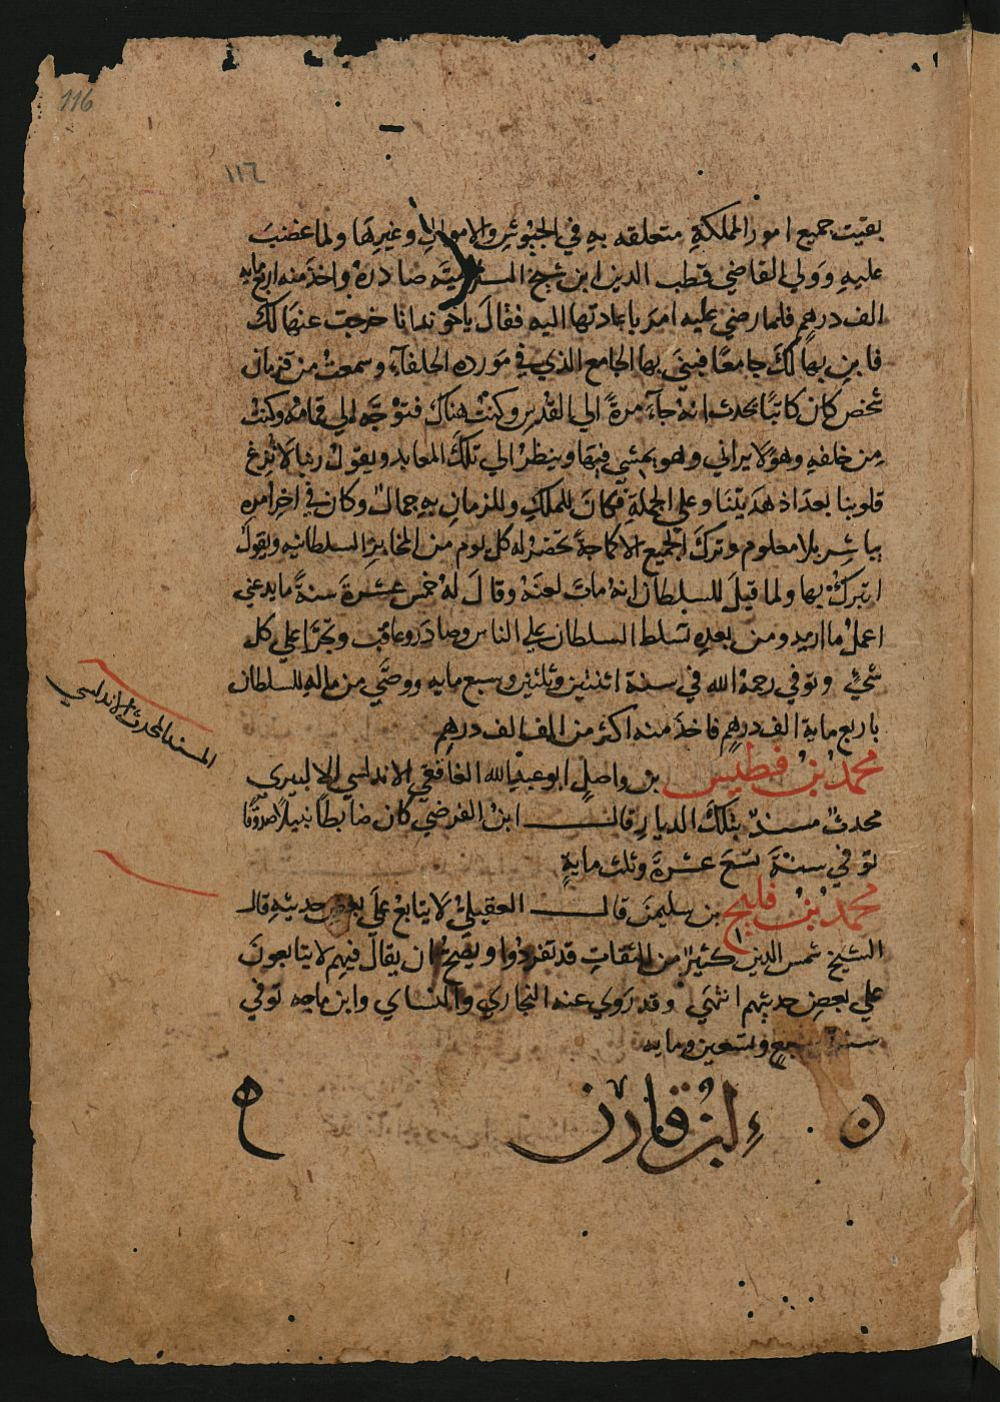 116
١١٦
بقيت جميع امور المملكةِ متعلقه بهِ في الجيُوشِ والاموالِ وغيرِهَا ولما غضبَ
عليهِ وَولي القاضي قطب الدين ابن شيخ السلاميَّه صادرهُ واخذ منه اربع مايه
الف درهمٍ فلما رضي عليه امرَ باعادتها اليه فقالَ ياخوند انا خرجت عنهَا لكَ
فابنِ بها لكَ جامعًا فبنَى بها الجامع الذي في مَورده الحلفآءِ وسمعتُ من
شخص كان كاتبًا يحدث انهُ جآءَ مرةً الي القدس وكنتُ هناكَ فتوجَّه الي قمامه وكنتُ
مِن خلفهِ وهوَ لا يراني وهو يمشي فيها وينظرُ الي تلكَ المعابد ويقولُ ربنا لا تُزغ
قلوبنا بعدَ اذ هَديتنَا وعلي الجملةِ فكانَ للملكِ وللزمانِ بهِ جمالٌ وكان في اخر امره
يباشِر بلا معلوم وتركَ الجميع الا كماجةً تحضرُ له كل يوم من المخابز السلطانيه ويقولُ
اتبركُ بها ولما قيلَ للسلطان انهُ ماتَ لعنَهُ وقالَ لهُ خمس عشرةَ سنةً ما يدعني
اعملُ ما اريد ومن بعدِه تسلط السلطان علي الناس وصادَر وعاقبَ وتجرَّا علي كل
شيٍ وتوفي رحمهُ الله في سنة اثنتين وثلثين وسبع مايه ووصَّي من مالهِ للسلطان
باربع مايةِ الف درهمٍ فاخذَ منه اكثر من الف الف درهمٍ
محمد بن فطيس بن واصلٍ ابو عبد الله الغافقي الاندلسي الالبيري
المسند المحدث الاندلسي
محدثٌ مسندٌ بتلكَ الديارِ قالَ ابنُ الفرضي كان ضابطًا نبيلًا صدوقًا
توفي سنةَ تسعَ عشرةَ وثلث مايةٍ
محمد بن فليح بن سليمنَ قالَ العقيليُّ لا يتابع علَي بعضِ حديثهِ قال
الشيخ شمس الدين كثيرٌ من الثقاتِ قد تفردُوا ويصحُّ ان يقالَ فيهم لا يتابعونَ
علي بعضِ حديثهم انتهَي وقد رَوي عنه البخاري والنساي وابن ماجه توفي
سنة سبعٍ وتسعين ومايه
ن ابن قارن ه